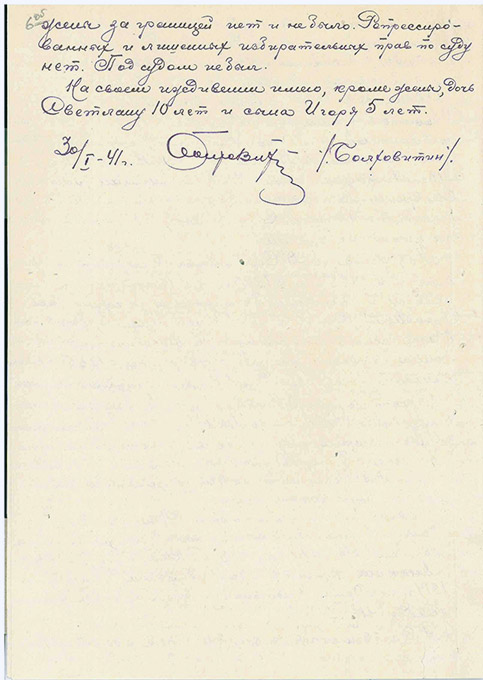 жены за границей нет и не было. Репрессиро-
ванных и лишенных избирательных прав по суду
нет. Под судом не был.
На своем иждивении имею, кроме жены, дочь
Светлану 10 лет и сына Игоря 5 лет.
30/I-41г. /Болховитин/.